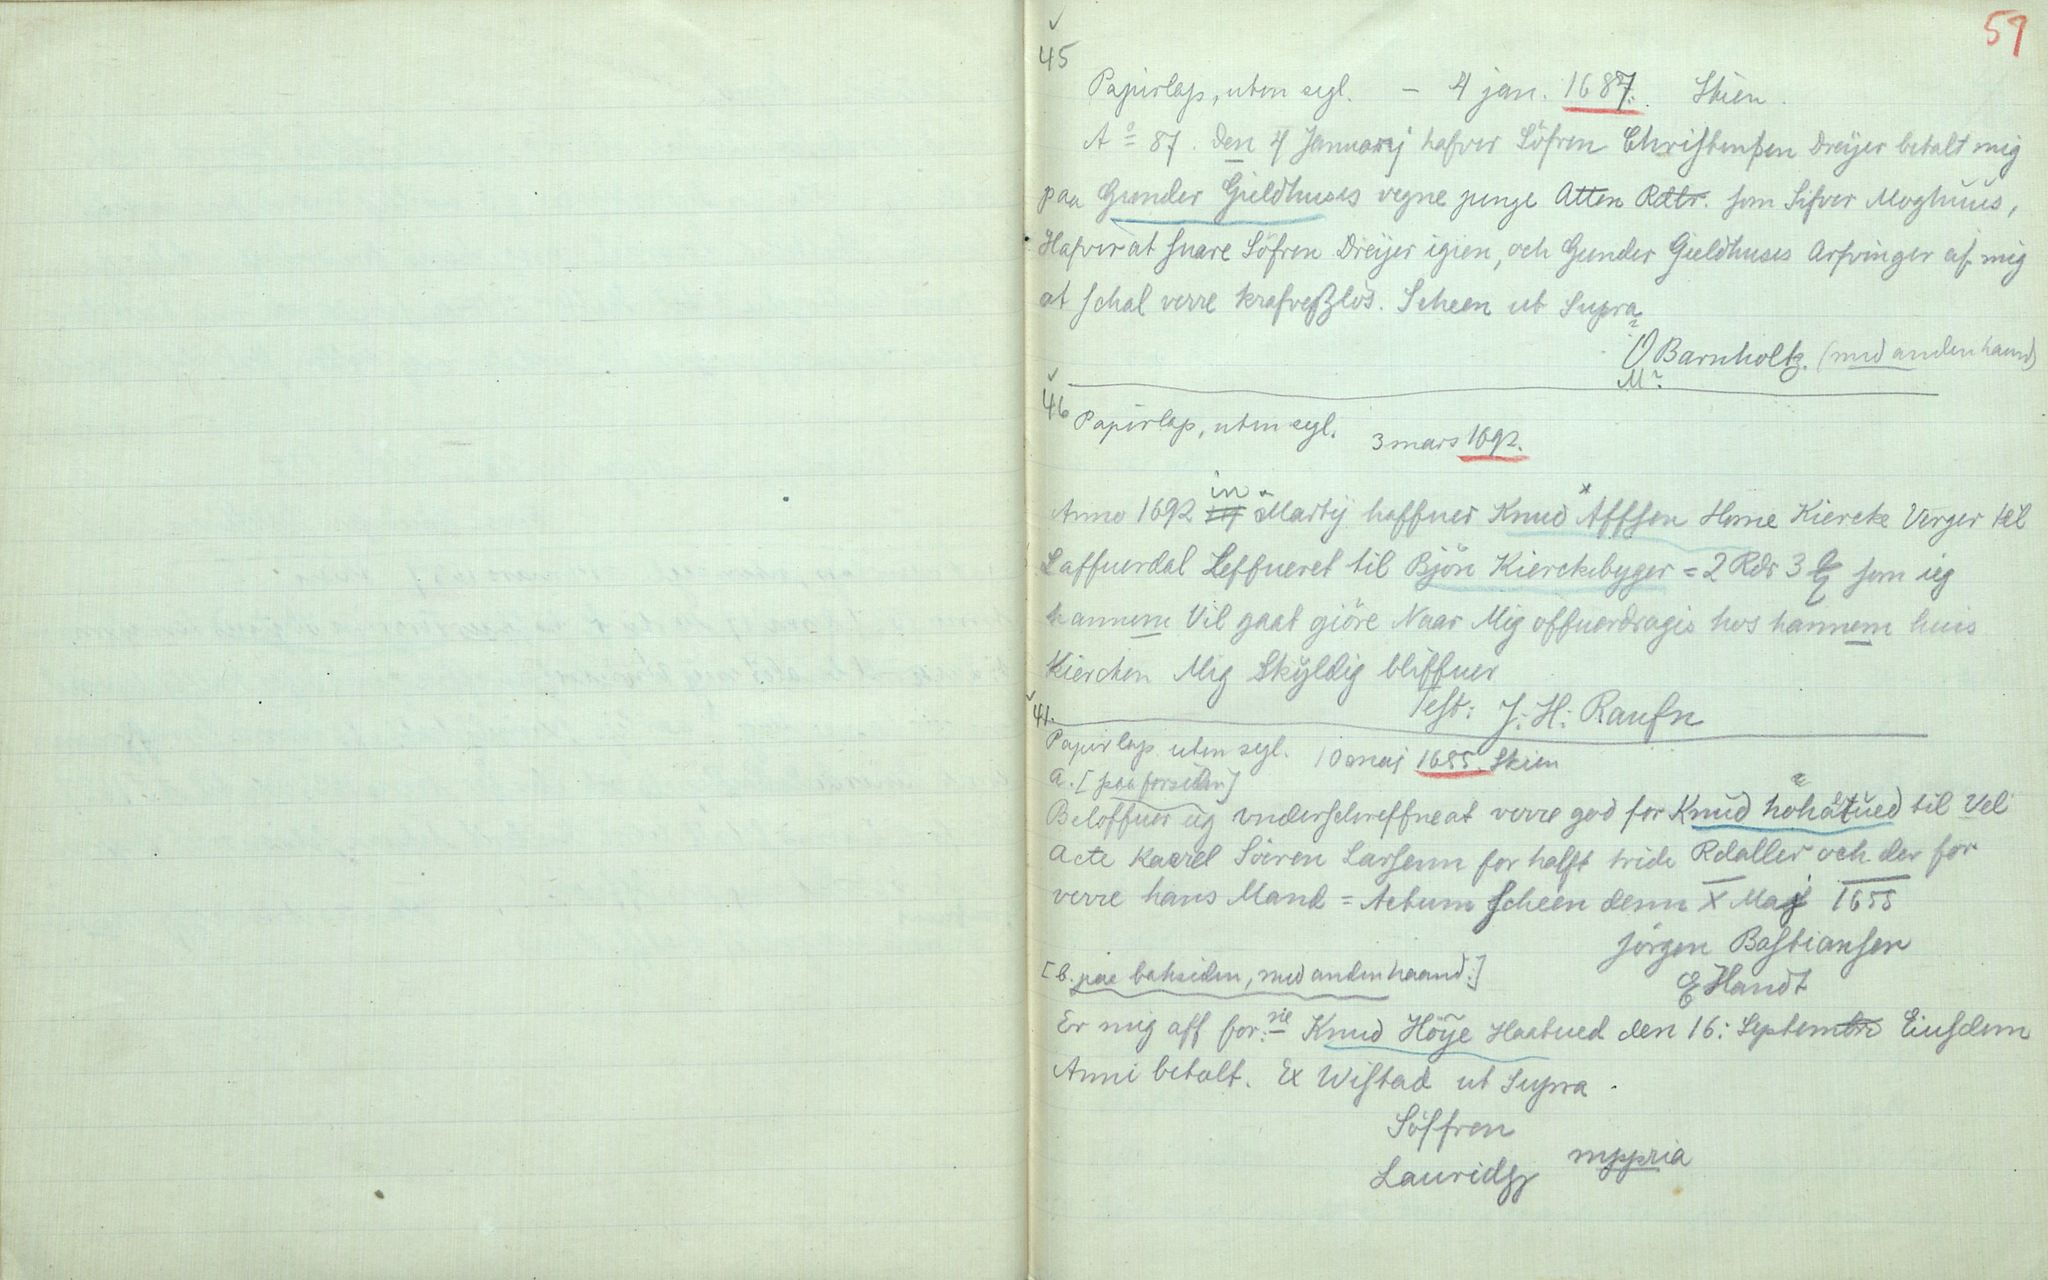 59
45
Papirlap, uten segl. – 4 jan. 1687. Skien.
Aº 87. den 4 Januarij hafver Söfren Christenssen Dreijer betalt mig
paa Gunder Gieldhuses vegne penge Atten Rdlr. som Sifver Moghuus,
Hafver at suare Söfren Dreijer igien, och Gunder Gieldhuses Arfvinger af mig
at schal verre krafvesløs. Scheen ut Supra
Barnholtz. (med anden haand)
M?
46
Papirlap, uten segl. 3 mars 1692.
in
Anno 1692 Martij haffuer Knud Affsen Heme Kiercke Verger til
Laffuerdal Leffueret til Bjön Kierckebyger = 2 Rdr 3 som ieg
hannem Vil gaat giöre Naar Mig offuerdragis hos hannem huis
Kierchen Mig Skyldig bliffuer
Test: J: H: Raufn
47.
Papirlap uten segl. 10 maj 1655. Skien
a. [paa forsiden]
Beloffuer ieg underschreffne at verre god for Knud höhatued til Vel
acte Kaerel Söeren Larsenn for halft tride Rdaller och der for
verre hans Mand = Actum Scheen denn X Maj 1655
Jörgen Bastiansen
E Handt
[b. paa baksiden, med anden haand.]
Er mig aff for:ne Knud Höÿe Haatued den 16: Septembr Eiusdem
Anni betalt. Ex Wistad ut Supra.
Söffren
mppria
Lauridsz